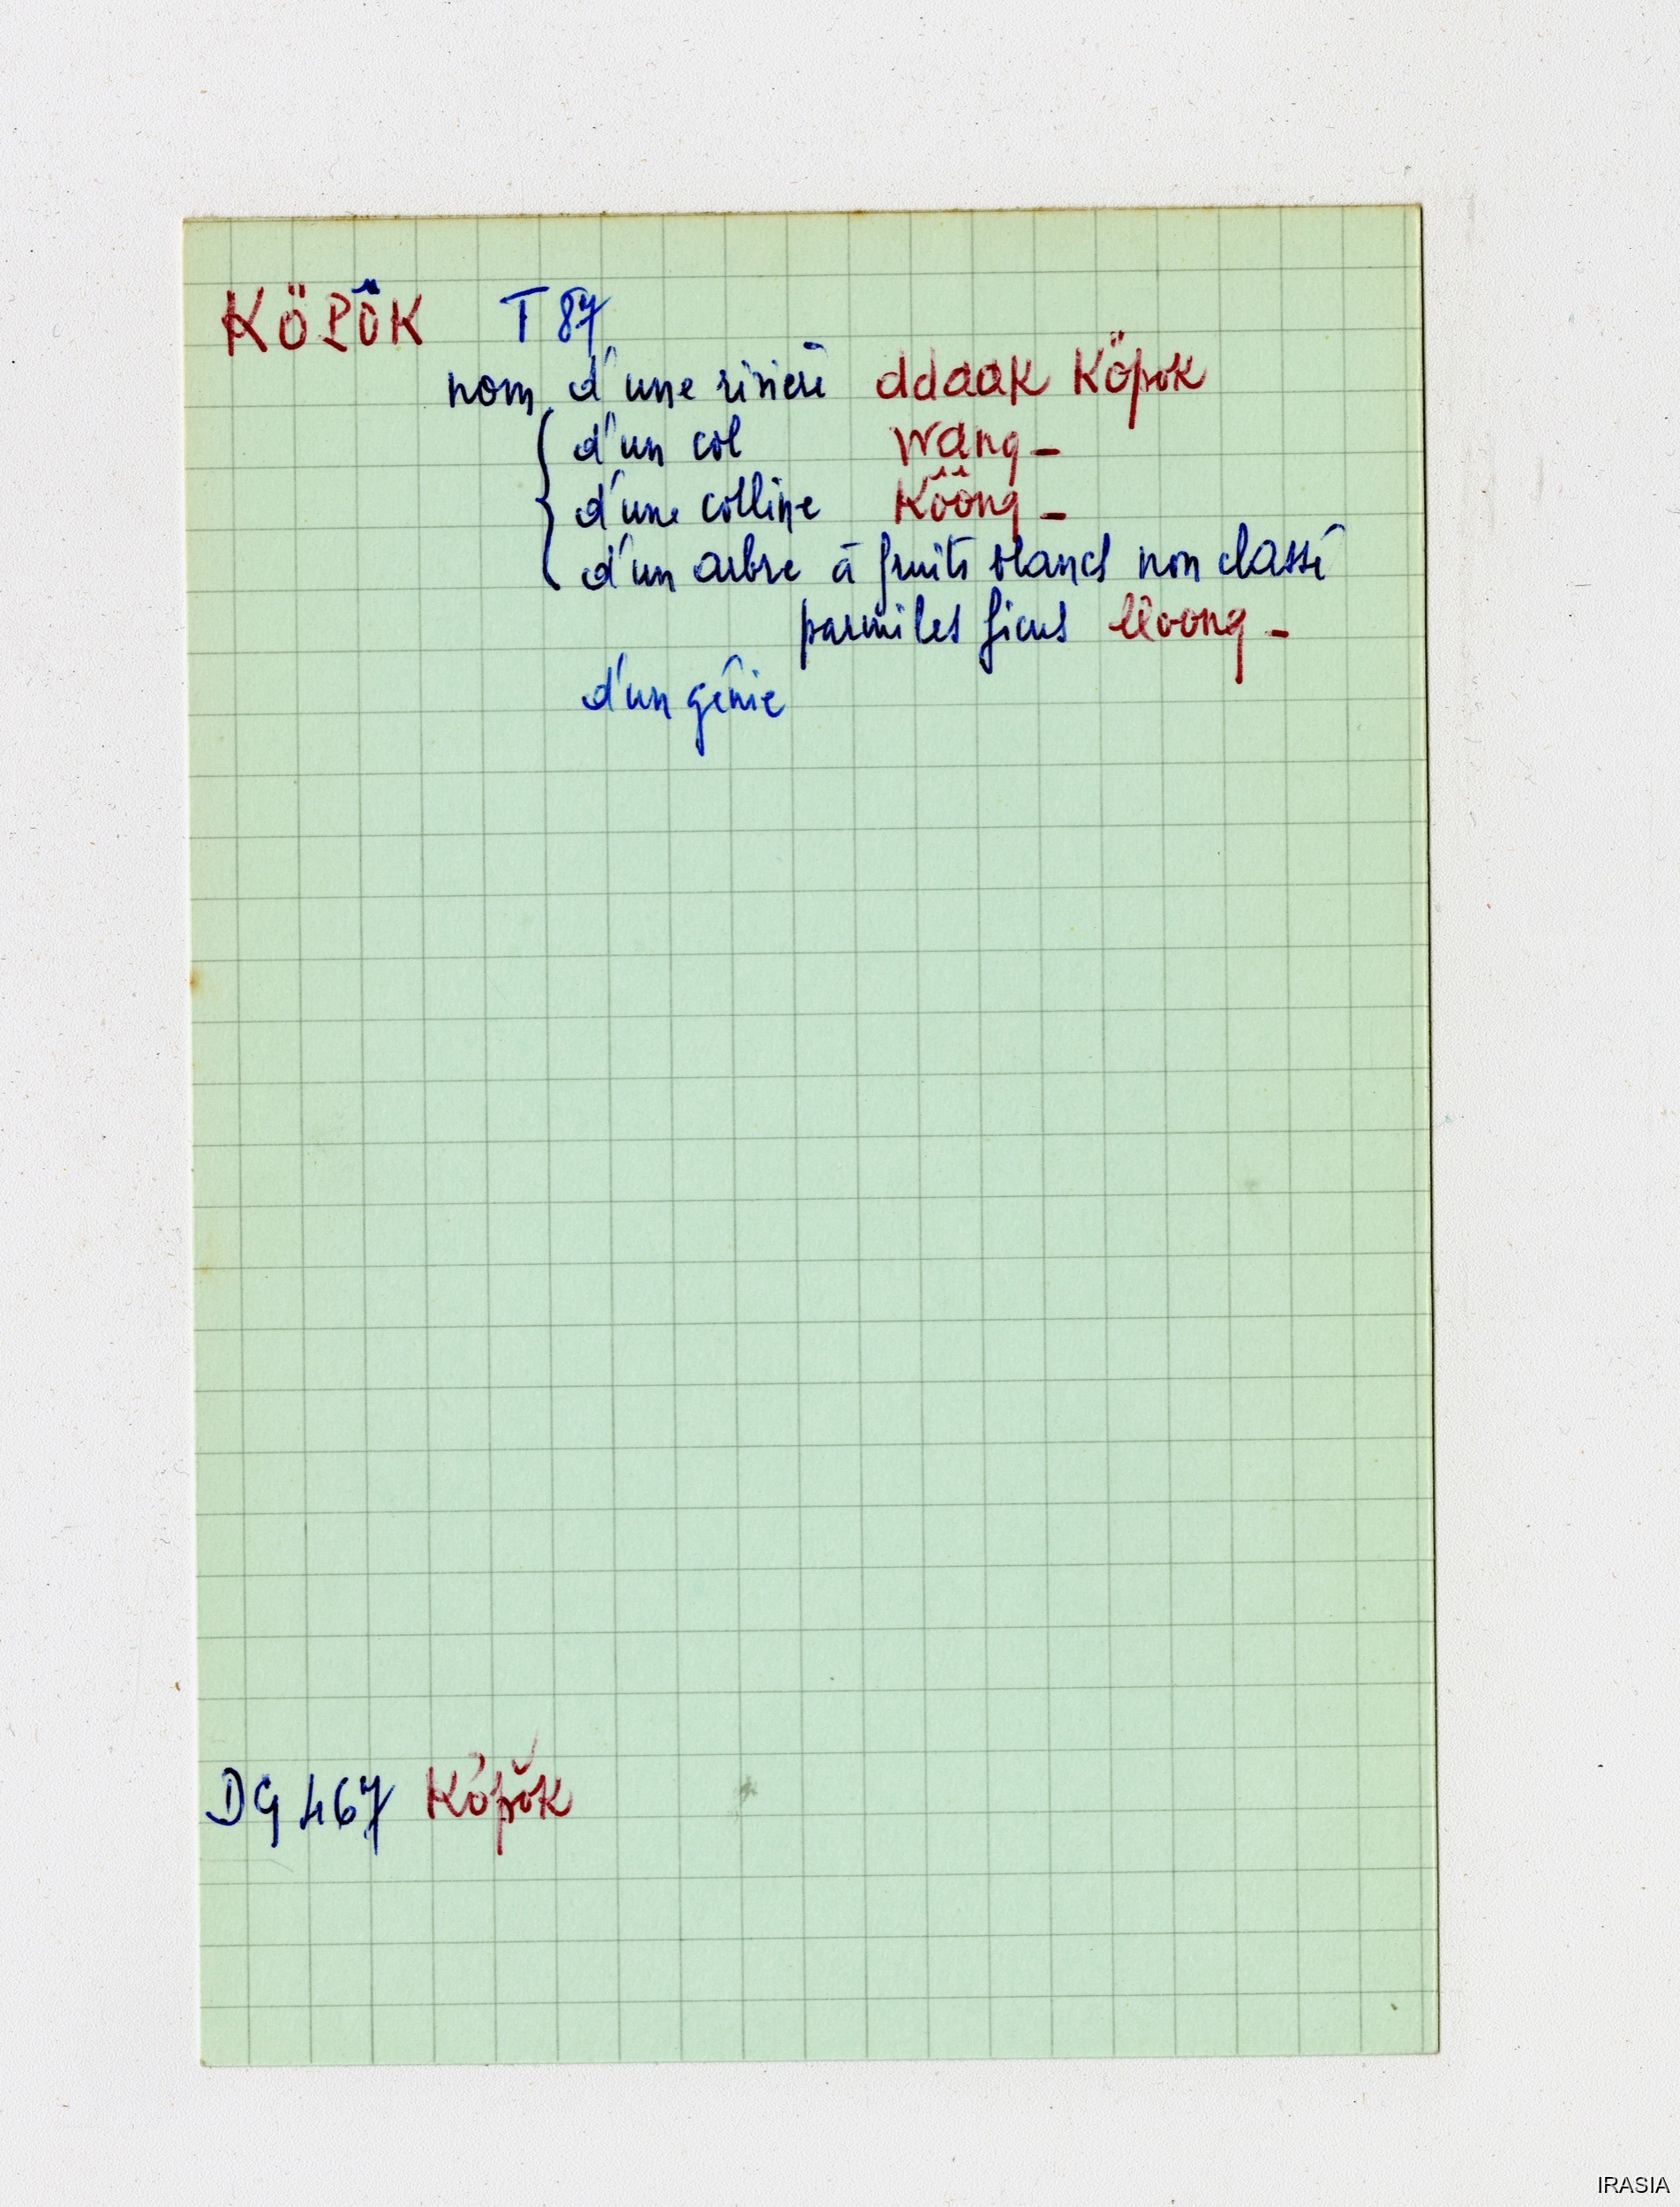 KÖPÔK T 87
nom d'une rivière ddaak Köpok
d'un col wang _
d'une colline Kôông _
d'un arbre à fruits blancs non classé
parmi les ficus _
d'un génie
DG 467 Kơpŏk
IRASIA